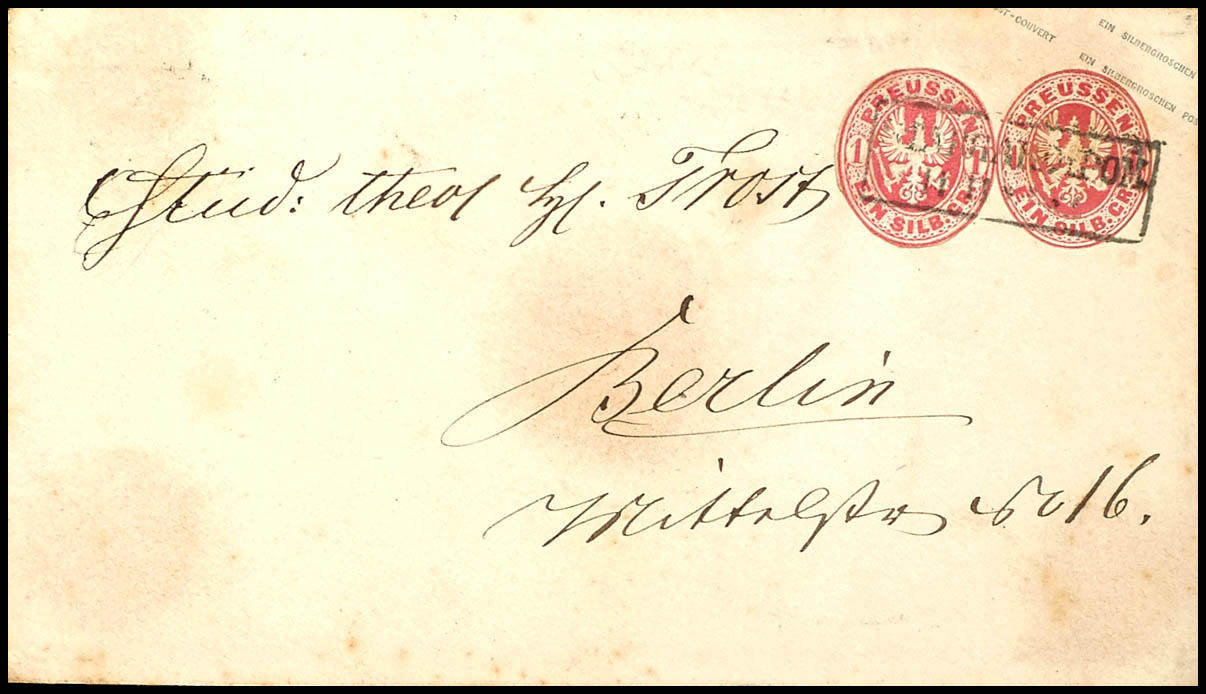 OST-COUVERT
EIN SILBERGROSCHEN
EIN SILBERGROSCHEN POS
PREUSSEN
1
EIN SILB: GR.
PREUSSEN
EIN SILB: GR.
POM
Stud: theol Hl. Trost
Berlin
Mittelstr No 16.